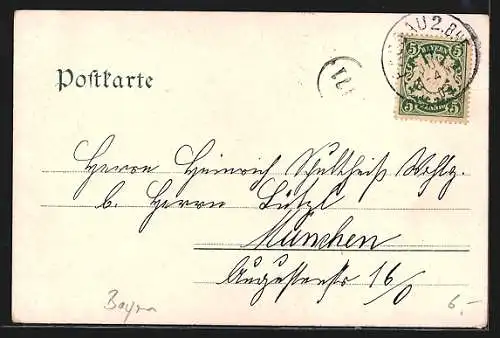 AU 2. B
BAYERN
5 5
5 5
Postkarte
Herrn Heinrich Schultheiß Wohlg.
b. Herrn Lützl
München
Augustenstr 16/0
Bayern
6.-